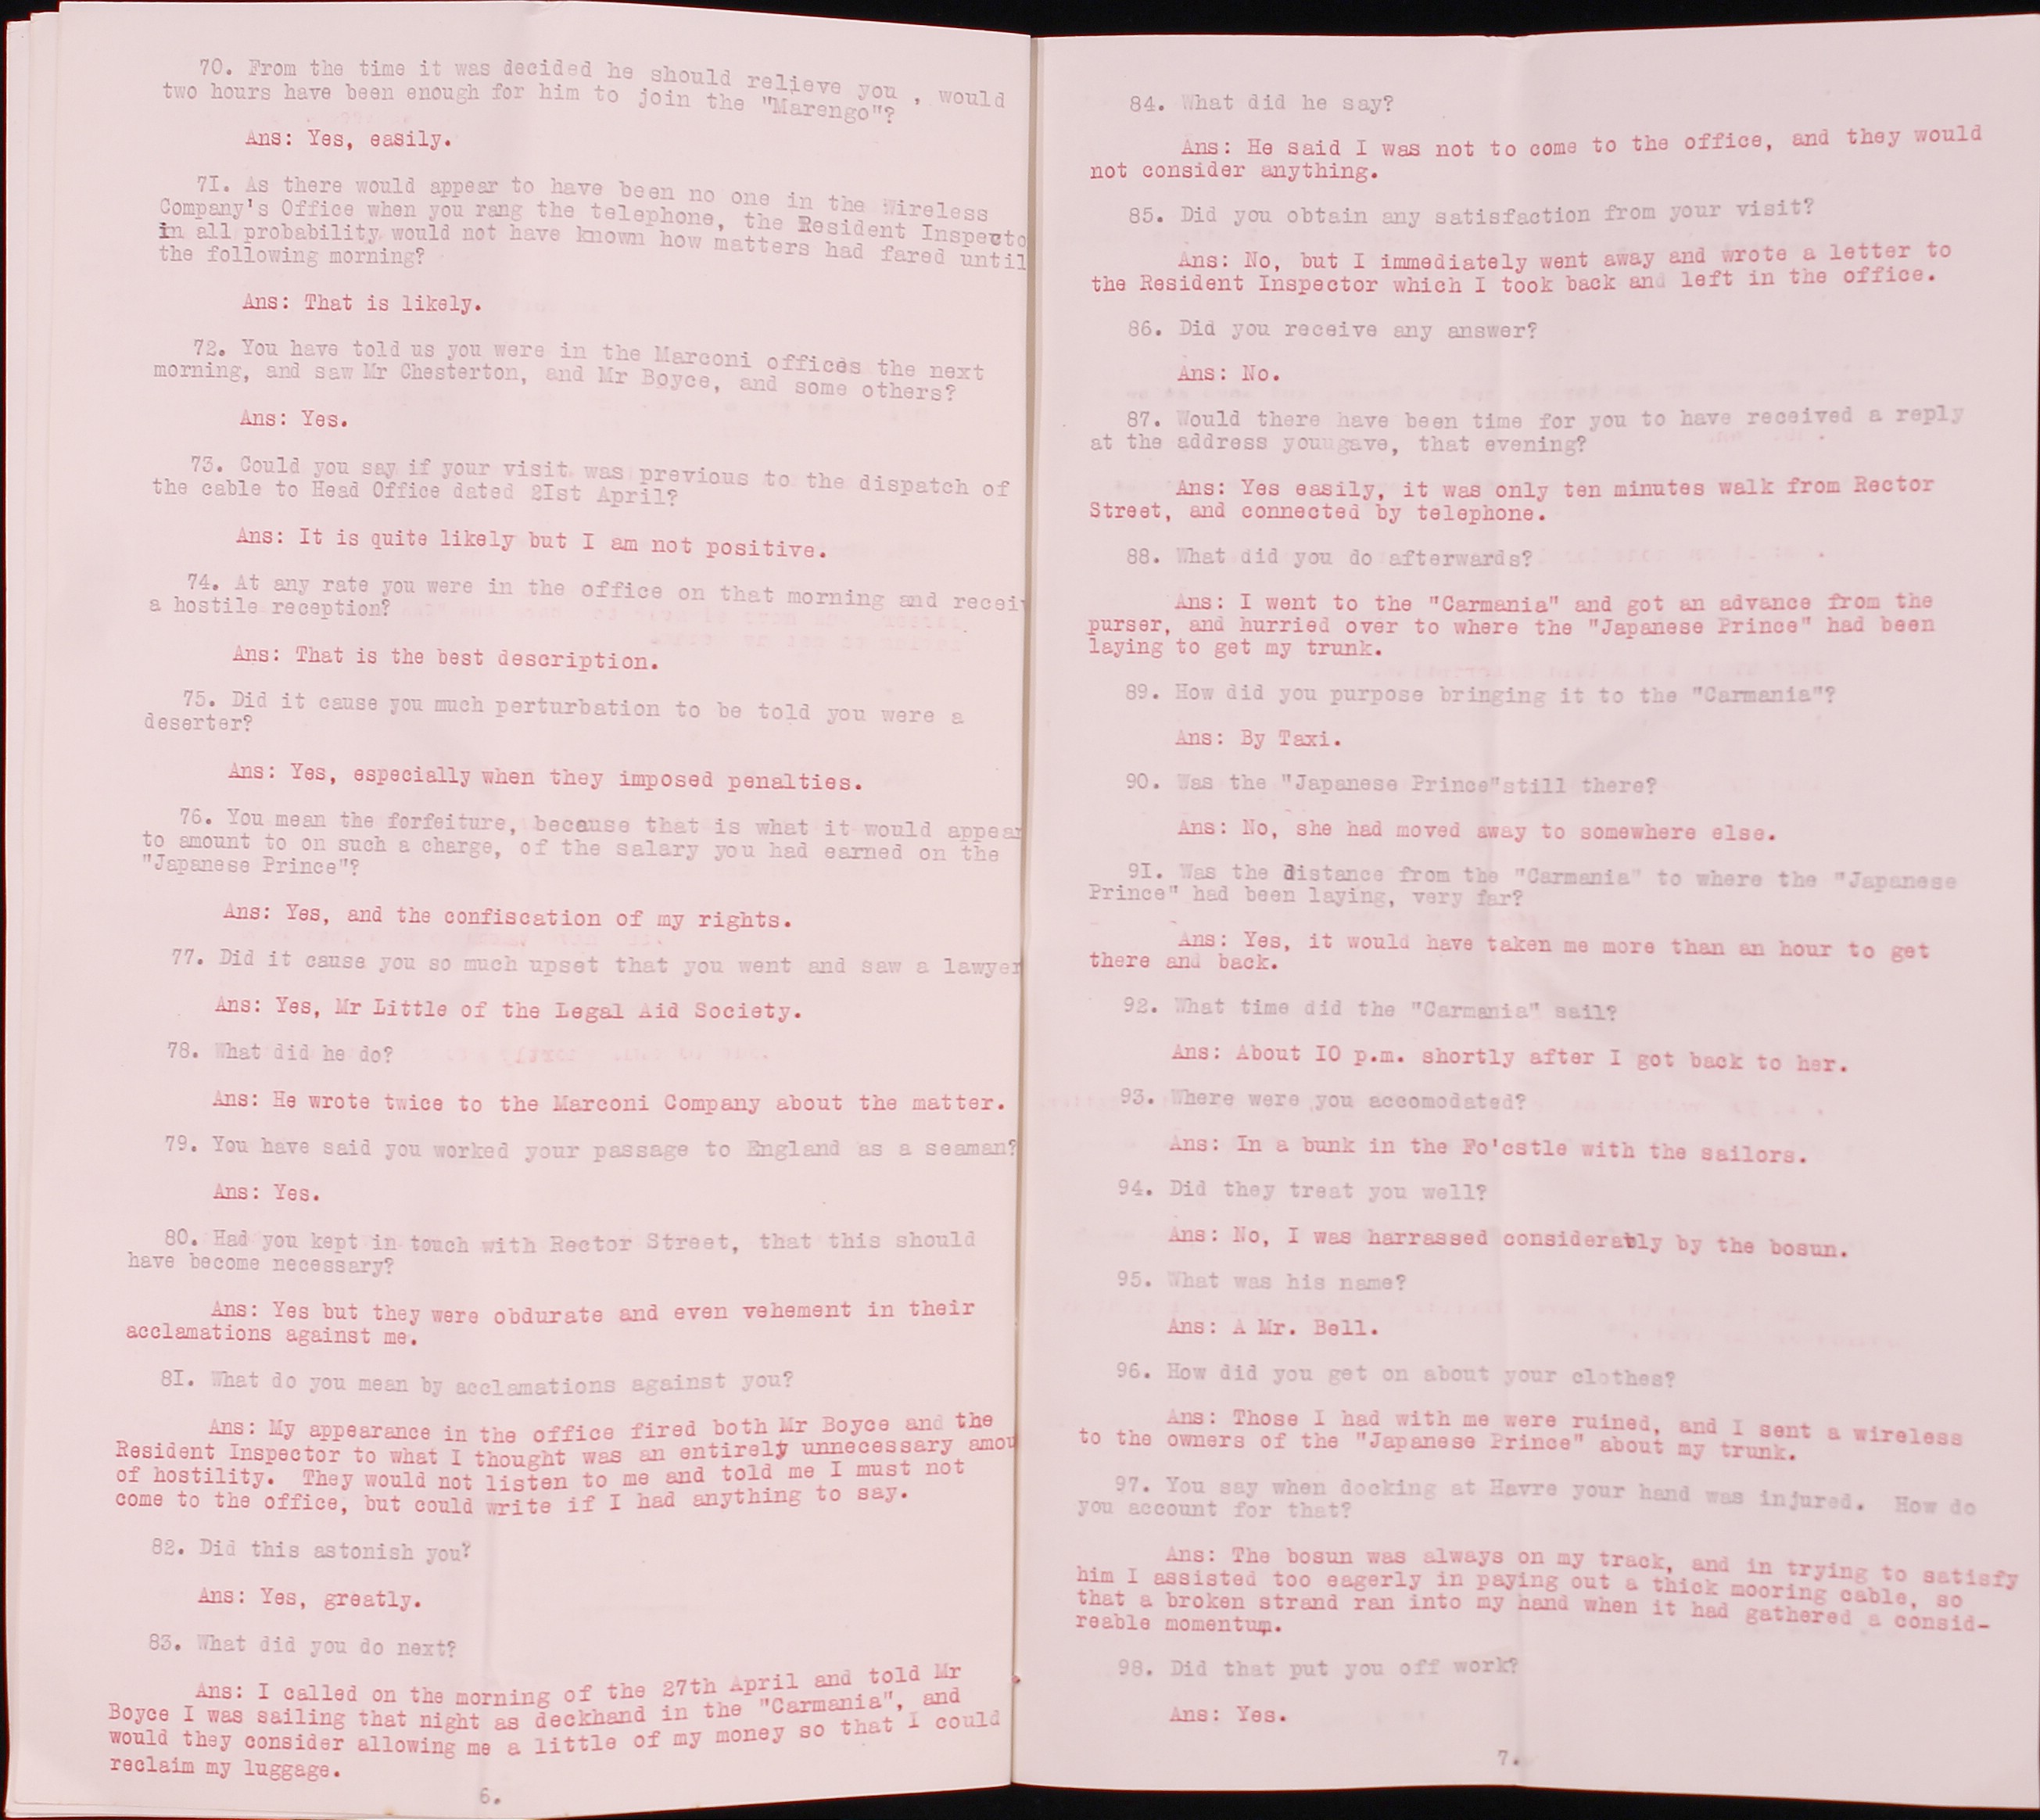 70. From the time it was decided he should relieve you , would
two hours have been enough for him to join the "Marengo"?
Ans: Yes, easily.
7I. As there would appear to have been no one in the Wireless
Company's Office when you rang the telephone, the Resident Inspecto
in all probability would not have known how matters had fared until
the following morning?
Ans: That is likely.
72. You have told us you were in the Marconi offices the next
morning, and saw Mr Chesterton, and Mr Boyce, and some others?
Ans: Yes.
73. Could you say if your visit was previous to the dispatch of
the cable to Head Office dated 2Ist April?
Ans: It is quite likely but I am not positive.
74. At any rate you were in the office on that morning and receiv
a hostile reception?
Ans: That is the best description.
75. Did it cause you much perturbation to be told you were a
deserter?
Ans: Yes, especially when they imposed penalties.
76. You mean the forfeiture, because that is what it would appear
to amount to on such a charge, of the salary you had earned on the
"Japanese Prince"?
Ans: Yes, and the confiscation of my rights.
77. Did it cause you so much upset that you went and saw a lawyer
Ans: Yes, Mr Little of the Legal Aid Society.
78. What did he do?
Ans: He wrote twice to the Marconi Company about the matter.
79. You have said you worked your passage to England as a seaman?
Ans: Yes.
80. Had you kept in touch with Rector Street, that this should
have become necessary?
Ans: Yes but they were obdurate and even vehement in their
acclamations against me.
8I. What do you mean by acclamations against you?
Ans: My appearance in the office fired both Mr Boyce and the
Resident Inspector to what I thought was an entirely unnecessary amou
of hostility. They would not listen to me and told me I must not
come to the office, but could write if I had anything to say.
82. Did this astonish you?
Ans: Yes, greatly.
83. What did you do next?
Ans: I called on the morning of the 27th April and told Mr
Boyce I was sailing that night as deckhand in the "Carmania", and
would they consider allowing me a little of my money so that I could
reclaim my luggage.
6.
84. What did he say?
Ans: He said I was not to come to the office, and they would
not consider anything.
85. Did you obtain any satisfaction from your visit?
Ans: No, but I immediately went away and wrote a letter to
the Resident Inspector which I took back and left in the office.
86. Did you receive any answer?
Ans: No.
87. Would there have been time for you to have received a reply
at the address youugave, that evening?
Ans: Yes easily, it was only ten minutes walk from Rector
Street, and connected by telephone.
88. What did you do afterwards?
Ans: I went to the "Carmania" and got an advance from the
purser, and hurried over to where the "Japanese Prince" had been
laying to get my trunk.
89. How did you purpose bringing it to the "Carmania"?
Ans: By Taxi.
90. Was the "Japanese Prince"still there?
Ans: No, she had moved away to somewhere else.
9I. Was the distance from the "Carmania" to where the "Japanese
Prince" had been laying, very far?
Ans: Yes, it would have taken me more than an hour to get
there and back.
92. What time did the "Carmania" sail?
Ans: About IO p.m. shortly after I got back to her.
93. Where were you accomodated?
Ans: In a bunk in the Fo'cstle with the sailors.
94. Did they treat you well?
Ans: No, I was harrassed considerably by the bosun.
95. What was his name?
Ans: A Mr. Bell.
96. How did you get on about your clothes?
Ans: Those I had with me were ruined, and I sent a wireless
to the owners of the "Japanese Prince" about my trunk.
97. You say when docking at Havre your hand was injured. How do
you account for that?
Ans: The bosun was always on my track, and in trying to satisfy
him I assisted too eagerly in paying out a thick mooring cable, so
that a broken strand ran into my hand when it had gathered a consid-
reable momentum.
98. Did that put you off work?
Ans: Yes.
7.